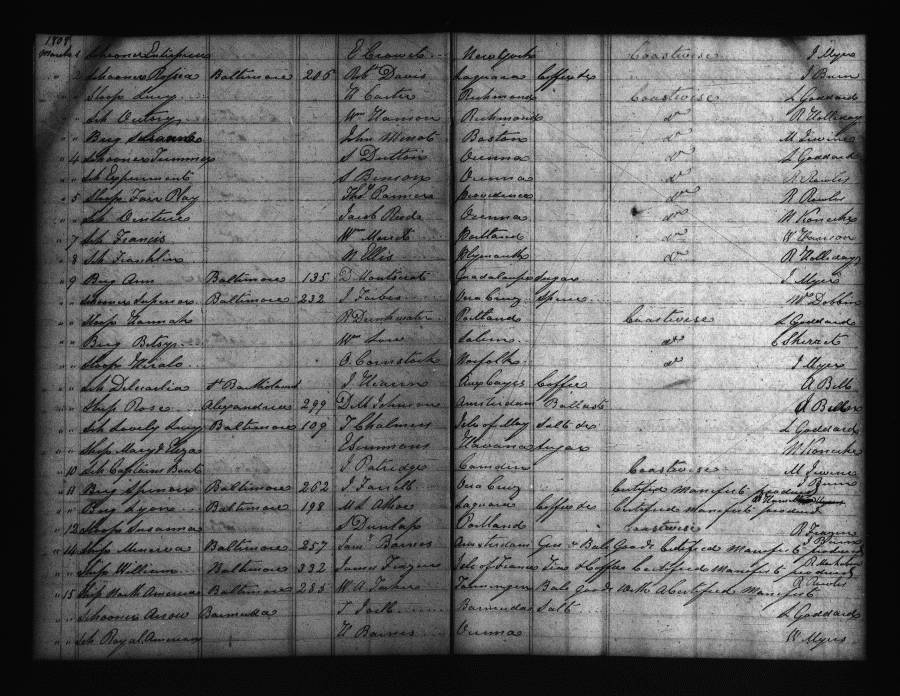 1808
March 1 Schooner Enterprise E Crowet New York Coastwise J Myer
" 2 Schooner Baltimore 205 Robt Davis Laguara Coffee &c J Burn
" " Sloop W Carter Richmond Coastwise L Goddard
" " Sch Wm Hanson Richmond do R Holliday
" " Brig John Boston do M Irwine
" 4 Schooner S Dutton Vienna do L Goddard
" " Sch Experiment S Benson Vienna do R Rowles
" 5 Sloop Fair Play Thos Providence do R Rowles
" " Sch Venture Jacob Reede Vienna do
" 7 Sch Francis Wm Portland do W Hanson
" 8 Sch Franklin N Ellis Plymouth do R Holliday
" 9 Brig Ann Baltimore 135 D Guadaloupe Sugar J Myer
" " Schooner Superior Baltimore 232 J Forbes Vera Cruz Specie Wm Dobbin
" " Sloop Hannah P Drinkwater Portland Coastwise L Goddard
" " Brig Betsy Wm Low Salem do
" " Sloop O Comstock Norfolk do J Myer
" " Sch St Bartholomew J Aux Cayes Coffee A Bell
" " Ship Rose Alexandria 299 D M Johnson Amsterdam Ballast
" " Sch Lovely Baltimore 109 T Chalmers Isle of May Salt &c L Goddard
" " Sloop Mary & Eliza E Simmons Havana Sugar
" 10 Sch Captains Boat J Patridge Camden Coastwise M Irwine
" 11 Brig Spencer Baltimore 262 J Farrell Vera Cruz Certified Manifest produced J Burn
" " Brig Lyon Baltimore 198 M L Laguara Coffee &c Certified Manifest produced
" 12 Sloop Susanna S Dunlap Portland Coastwise R Frazier
" 14 Ship Minerva Baltimore 257 Saml Barnes Amsterdam Gin & Bale Goods Certified Manifest produced J Burn
" " Ship William Baltimore 332 James Frazier Isle of France Teas & Coffee Certified Manifest produced
" 15 Ship North America Baltimore 285 W A Bale Goods With A Certified Manifest R Rowles
" " Schooner Arrow Barmuda T Barmuda Salt L Goddard
" " Sch Royal American W Barnes Vienna W Myers